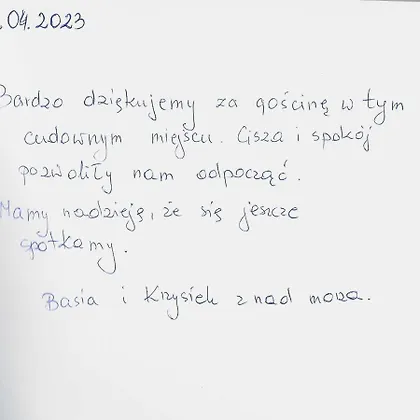 .04.2023
Bardzo dziękujemy za gościnę w tym
cudownym miejscu. Cisza i spokój
pozwoliły nam odpocząć.
Mamy nadzieję, że się jeszcze
spotkamy.
Basia i Krzysiek znad morza.